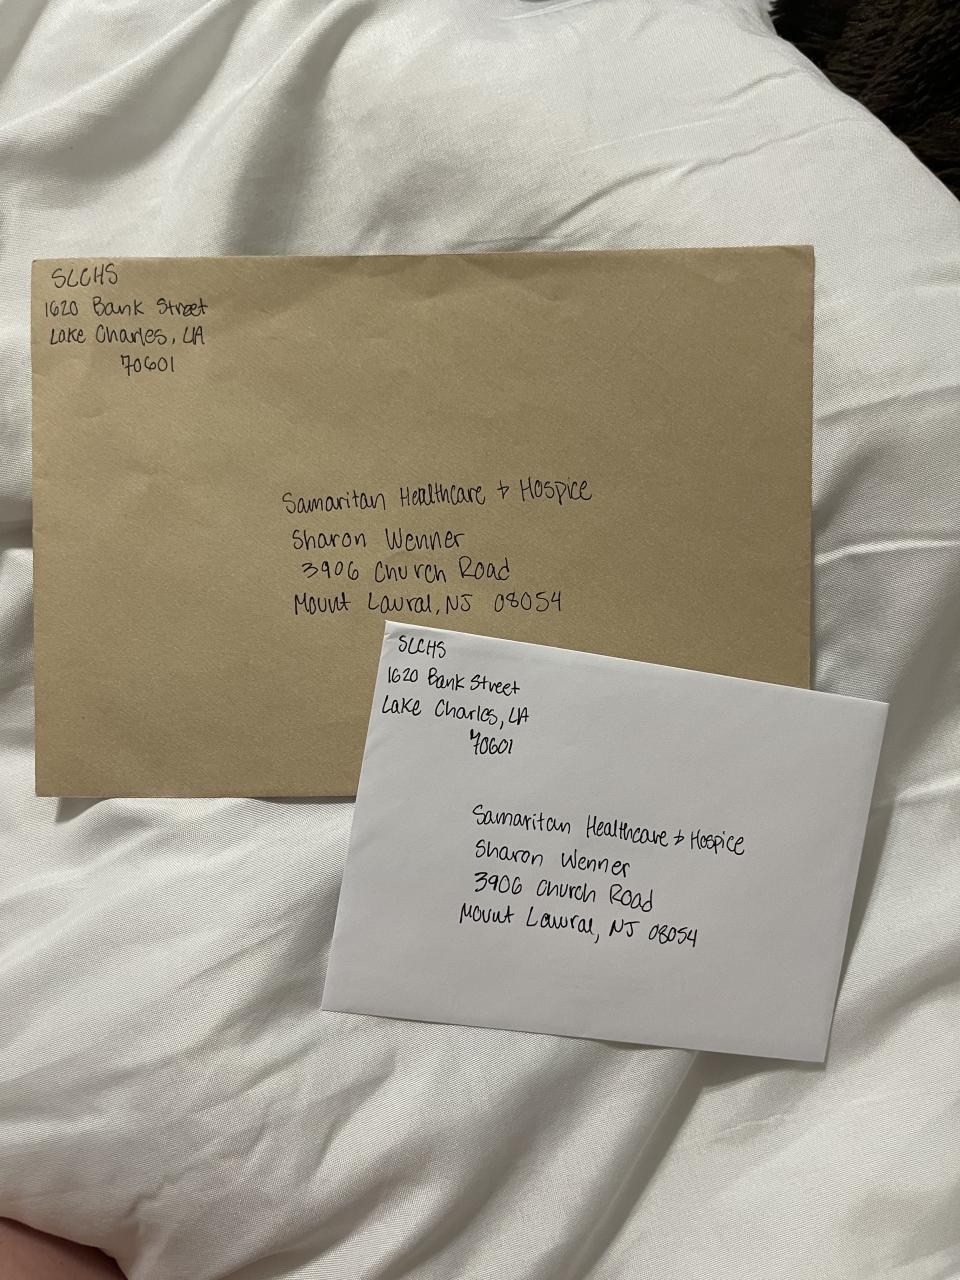 SLCHS
1620 Bank Street
Lake Charles, LA
70601
Samaritan Healthcare & Hospice
Sharon Wenner
3906 Church Road
Mount Laural, NJ 08054
SLCHS
1620 Bank Street
Lake Charles, LA
70601
Samaritan Healthcare & Hospice
Sharon Wenner
3906 Church Road
Mount Lawral, NJ 08054